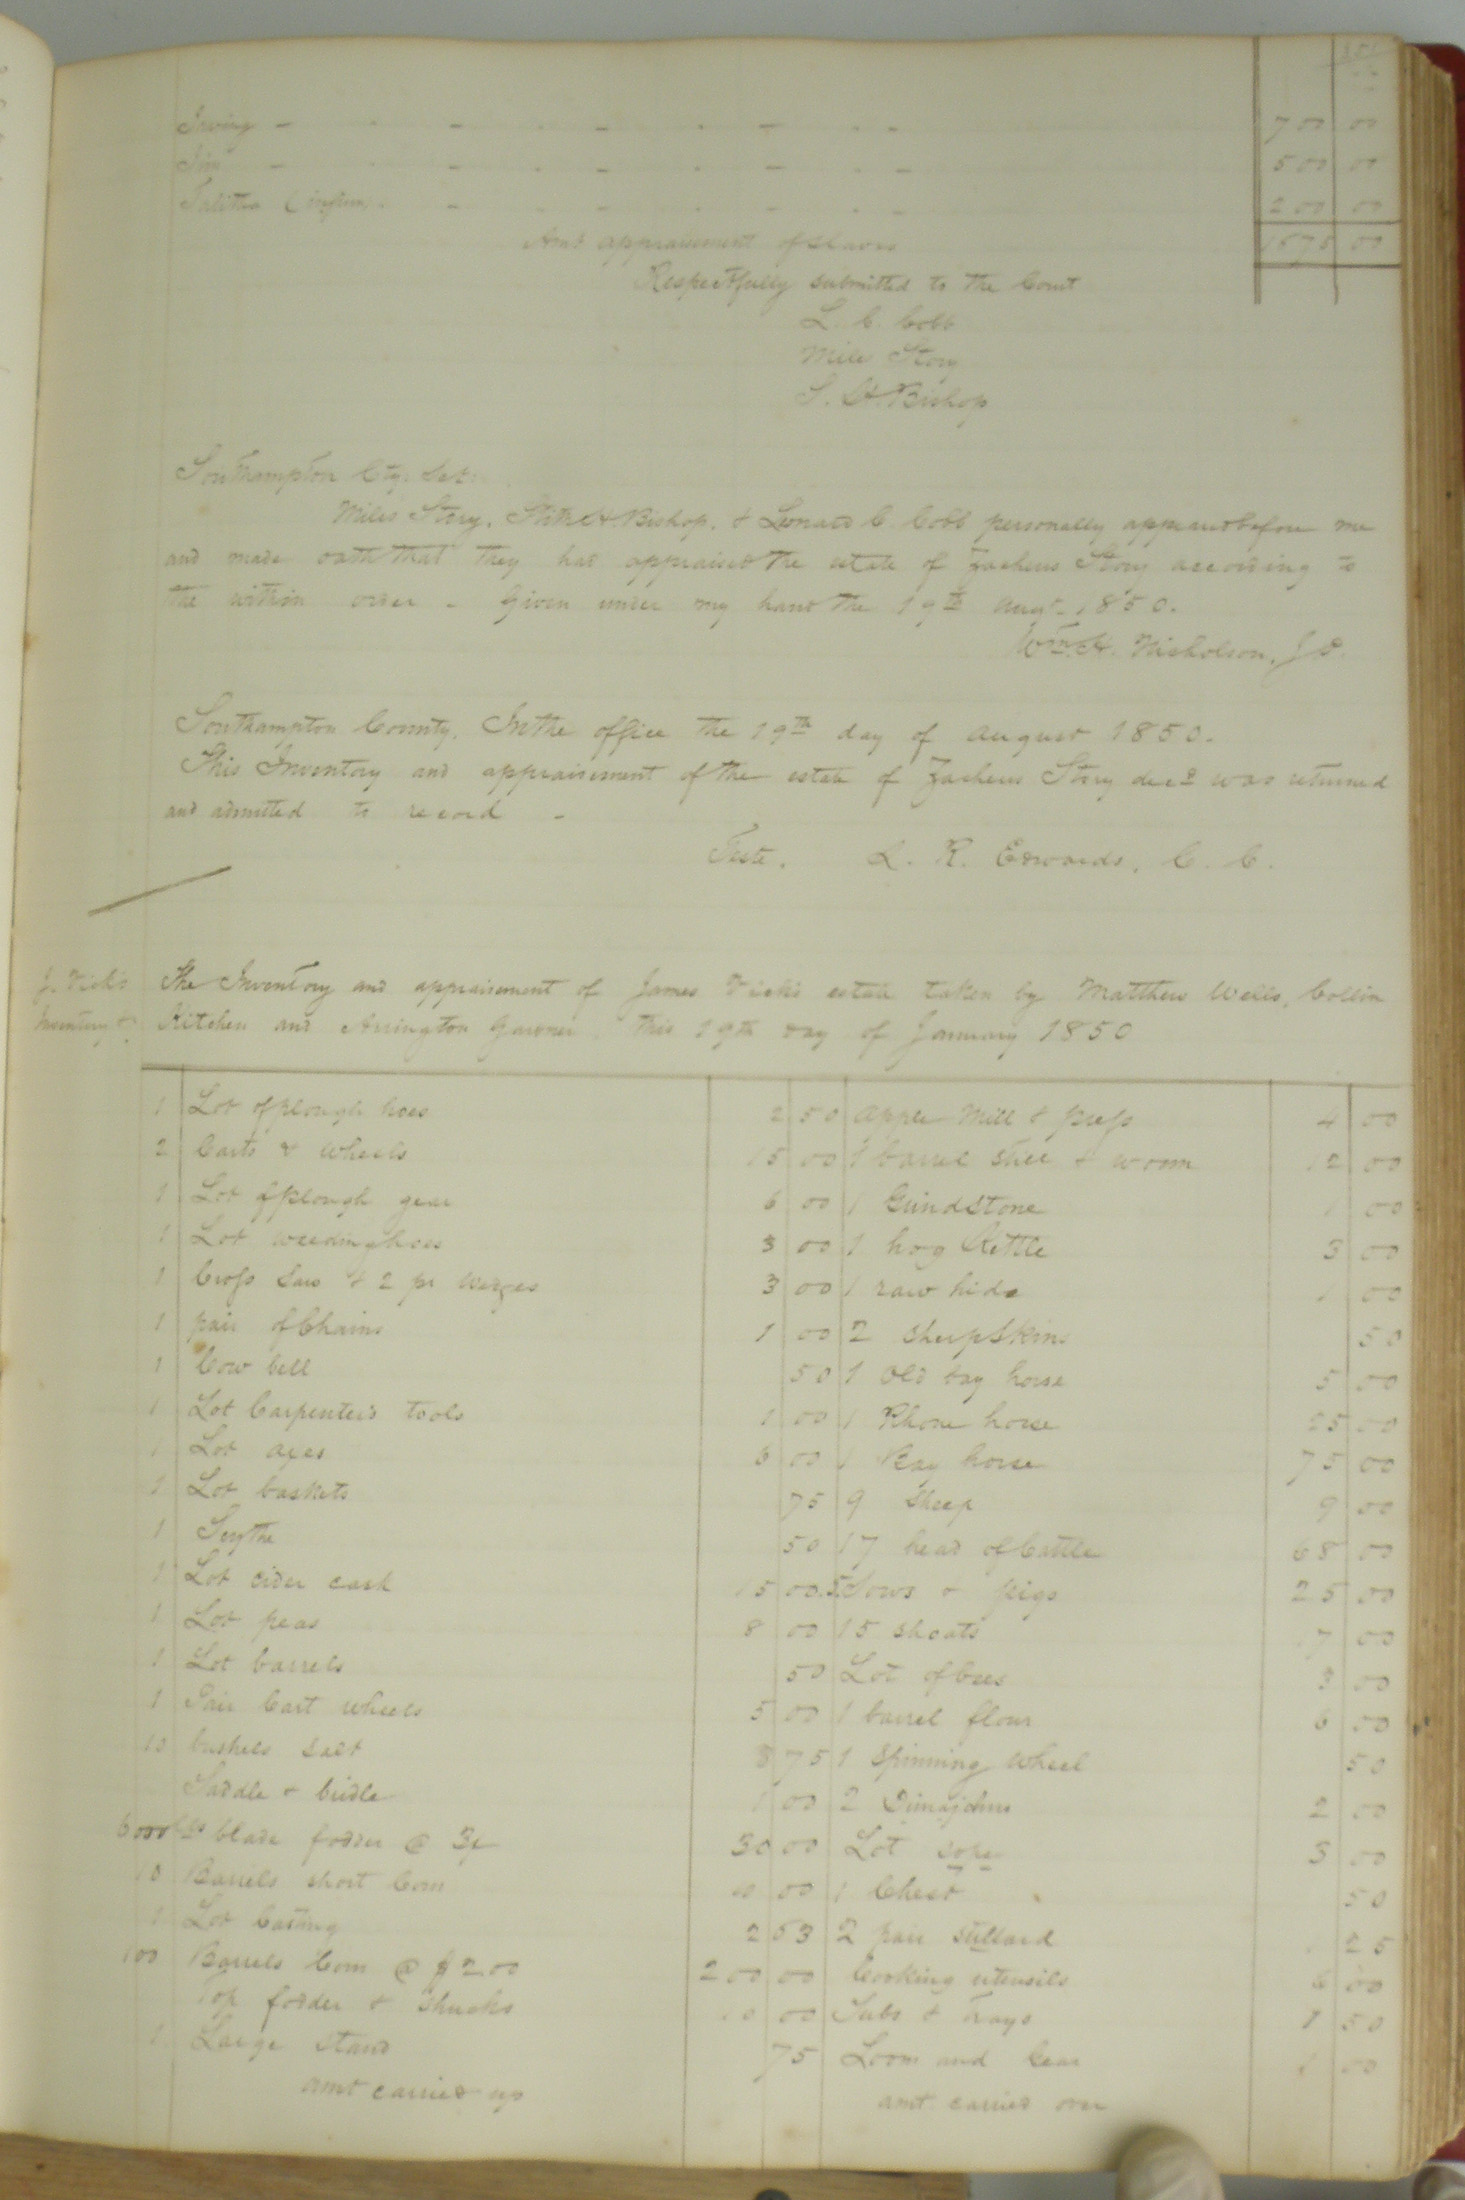 Irving - - - - - - - 700 00
- - - - - - - 500 00
Talitha - - - - - - 200 00
Amt appraisement of slaves 1675 00
Respectfully submitted to the Court
L. C. Cobb
Miles Story
S. H. Bishop
Southampton Cty. Sct:
Miles Story, Stith H. Bishop, & Leonard C. Cobb personally appeared before me
and made oath that they had appraised the estate of Zacheus Story according to
the within order - Given under my hand the 19th Augt. 1850.
Wm. H. Nicholson, J P.
Southampton County. In the office the 19th day of August 1850.
This Inventory and appraisement of the estate of Zacheus Story decd was returned
and admitted to record -
Teste. L. R. Edwards, C. C.
J. Vick's The Inventory and appraisement of James Vick's estate taken by Matthew Wells, Collin
Inventory &. Kitchen and Arrington Gardner this 19th day of January 1850
1 Lot of plough hoes 2 50 Apple Mill & press 4 00
2 Carts & wheels 15 00 1 barrel still & worm 12 00
1 Lot of plough gear 6 00 1 Grindstone 1 00
1 Lot weeding hoes 3 00 1 hog Kettle 3 00
1 Cross Saw & 2 pr wedges 3 00 1 raw hide 1 00
1 pair of Chains 1 00 2 sheep skins 50
1 Cow bell 50 1 Old bay horse 5 00
1 Lot Carpenter's tools 1 00 1 Rhone horse 25 00
1 Lot axes 6 00 1 Bay horse 75 00
1 Lot baskets 75 9 sheep 9 00
1 Scythe 50 17 head of Cattle 68 00
1 Lot cider cask 15 00 5 Sows & pigs 25 00
1 Lot peas 8 00 15 shoats 17 00
1 Lot barrels 50 Lot of bees 3 00
1 Pair Cart wheels 5 00 1 barrel flour 6 00
10 bushels salt 8 75 1 Spinning wheel 50
Saddle & bridle 1 00 2 Dimajohns 2 00
6000 lbs blade fodder @ 30 00 Lot 3 00
10 Barrels short Corn 00 1 Chest 50
1 Lot Casting 2 53 2 pair stillard 1 25
100 Barrels Corn @ $2.00 200 00 Cooking utensils 6 00
Top fodder & shucks 10 00 Tubs & trays 1 50
1 Large stand 75 Loom and Gear 1 00
amt carried up amt. carried over